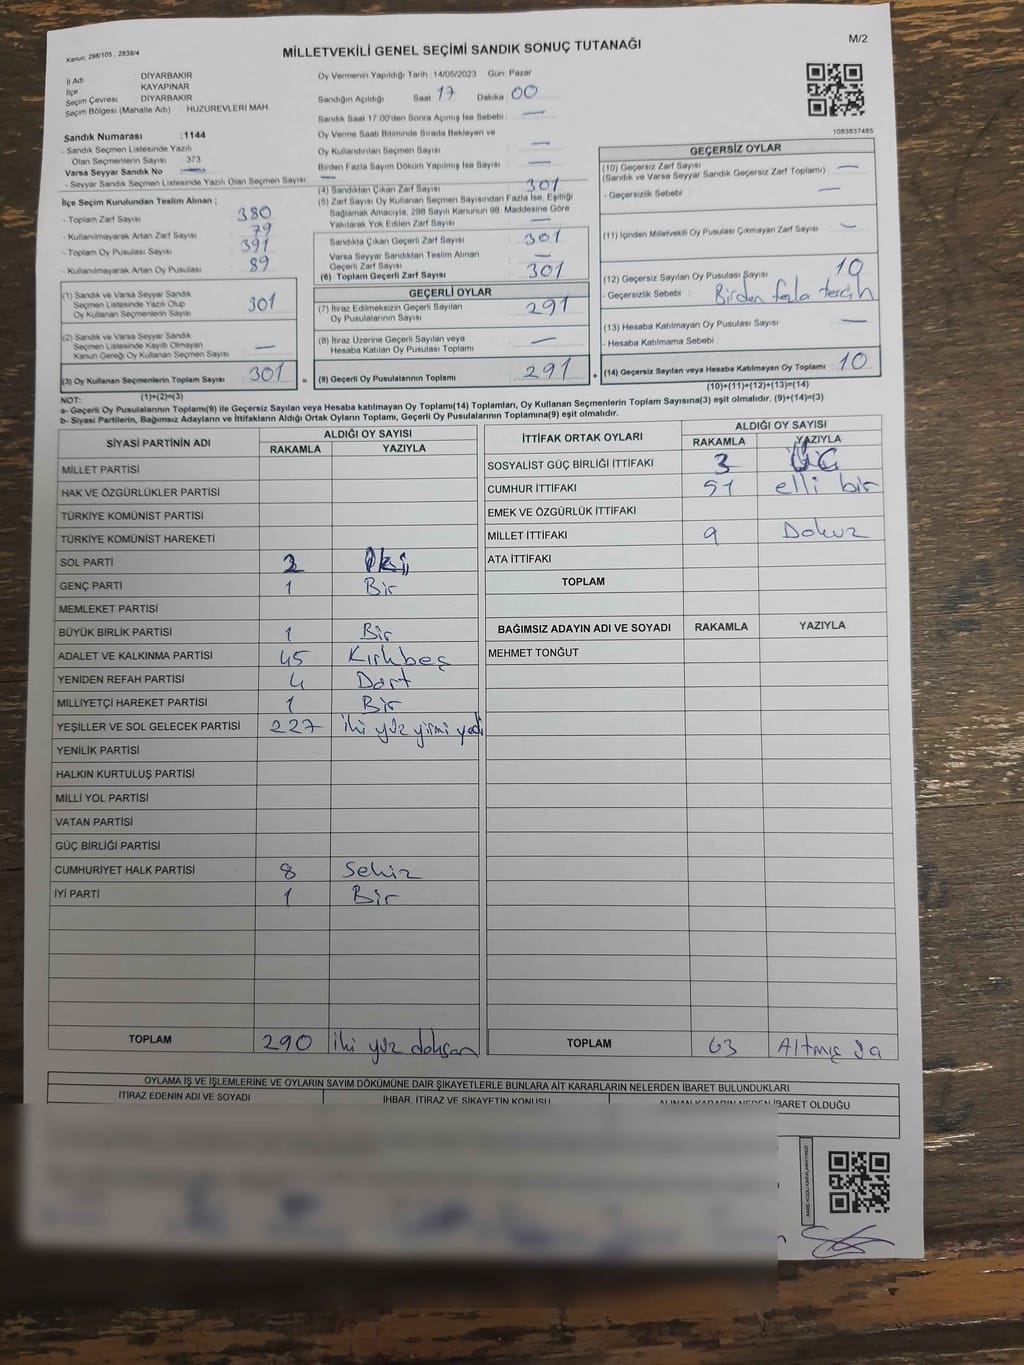 Kanun: 298/105 , 2839/4
MİLLETVEKİLİ GENEL SEÇİMİ SANDIK SONUÇ TUTANAĞI
M/2
İl Adı : DİYARBAKIR
İlçe : KAYAPINAR
Seçim Çevresi : DİYARBAKIR
Seçim Bölgesi (Mahalle Adı) : HUZUREVLERİ MAH.
Sandık Numarası :1144
- Sandık Seçmen Listesinde Yazılı
Olan Seçmenlerin Sayısı : 373
Varsa Seyyar Sandık No : —
- Seyyar Sandık Seçmen Listesinde Yazılı Olan Seçmen Sayısı: —
Oy Vermenin Yapıldığı Tarih :14/05/2023 Gün: Pazar
Sandığın Açıldığı Saat 17 Dakika 00
Sandık Saat 17.00'den Sonra Açımış İse Sebebi : —
Oy Verme Saati Bitiminde Sırada Bekleyen ve
Oy Kullandırılan Seçmen Sayısı —
Birden Fazla Sayım Döküm Yapılmış İse Sayısı : —
1083837485
İlçe Seçim Kurulundan Teslim Alınan ;
- Toplam Zarf Sayısı : 380
- Kullanılmayarak Artan Zarf Sayısı : 79
- Toplam Oy Pusulası Sayısı : 391
- Kullanılmayarak Artan Oy Pusulası : 89
(1) Sandık ve Varsa Seyyar Sandık
Seçmen Listesinde Yazılı Olup
Oy Kullanan Seçmenlerin Sayısı 301
(2) Sandık ve Varsa Seyyar Sandık
Seçmen Listesinde Kayıtlı Olmayan
Kanun Gereği Oy Kullanan Seçmen Sayısı —
(3) Oy Kullanan Seçmenlerin Toplam Sayısı 301 =
(1)+(2)=(3)
(4) Sandıktan Çıkan Zarf Sayısı 301
(5) Zarf Sayısı Oy Kullanan Seçmen Sayısından Fazla İse, Eşitliği
Sağlamak Amacıyla, 298 Sayılı Kanunun 98. Maddesine Göre
Yakılarak Yok Edilen Zarf Sayısı —
Sandıkta Çıkan Geçerli Zarf Sayısı 301
Varsa Seyyar Sandıktan Teslim Alınan
Geçerli Zarf Sayısı —
(6) Toplam Geçerli Zarf Sayısı 301
GEÇERLİ OYLAR
(7) İtiraz Edilmeksizin Geçerli Sayılan
Oy Pusulalarının Sayısı 291
(8) İtiraz Üzerine Geçerli Sayılan veya
Hesaba Katılan Oy Pusulası Toplamı —
(9) Geçerli Oy Pusulalarının Toplamı 291 +
GEÇERSİZ OYLAR
(10) Geçersiz Zarf Sayısı
(Sandık ve Varsa Seyyar Sandık Geçersiz Zarf Toplamı) : —
- Geçersizlik Sebebi : —
(11) İçinden Milletvekili Oy Pusulası Çıkmayan Zarf Sayısı —
(12) Geçersiz Sayılan Oy Pusulası Sayısı 10
- Geçersizlik Sebebi : Birden fazla tercih
(13) Hesaba Katılmayan Oy Pusulası Sayısı —
- Hesaba Katılmama Sebebi :
(14) Geçersiz Sayılan veya Hesaba Katılmayan Oy Toplamı 10
(10)+(11)+(12)+(13)=(14)
NOT:
a- Geçerli Oy Pusulalarının Toplamı(9) ile Geçersiz Sayılan veya Hesaba katılmayan Oy Toplamı(14) Toplamları, Oy Kullanan Seçmenlerin Toplam Sayısına(3) eşit olmalıdır. (9)+(14)=(3)
b- Siyasi Partilerin, Bağımsız Adayların ve İttifakların Aldığı Ortak Oyların Toplamı, Geçerli Oy Pusulalarının Toplamına(9) eşit olmalıdır.
SİYASİ PARTİNİN ADI ALDIĞI OY SAYISI
RAKAMLA YAZIYLA
MİLLET PARTİSİ
HAK VE ÖZGÜRLÜKLER PARTİSİ
TÜRKİYE KOMÜNİST PARTİSİ
TÜRKİYE KOMÜNİST HAREKETİ
SOL PARTİ 2 iki
GENÇ PARTİ 1 Bir
MEMLEKET PARTİSİ
BÜYÜK BİRLİK PARTİSİ 1 Bir
ADALET VE KALKINMA PARTİSİ 45 Kırkbeş
YENİDEN REFAH PARTİSİ 4 Dört
MİLLİYETÇİ HAREKET PARTİSİ 1 Bir
YEŞİLLER VE SOL GELECEK PARTİSİ 227 iki yüz yirmi yedi
YENİLİK PARTİSİ
HALKIN KURTULUŞ PARTİSİ
MİLLİ YOL PARTİSİ
VATAN PARTİSİ
GÜÇ BİRLİĞİ PARTİSİ
CUMHURİYET HALK PARTİSİ 8 Sekiz
İYİ PARTİ 1 Bir
TOPLAM 290 iki yüz doksan
İTTİFAK ORTAK OYLARI ALDIĞI OY SAYISI
RAKAMLA YAZIYLA
SOSYALİST GÜÇ BİRLİĞİ İTTİFAKI 3 ÜÇ
CUMHUR İTTİFAKI 51 elli bir
EMEK VE ÖZGÜRLÜK İTTİFAKI
MİLLET İTTİFAKI 9 Dokuz
ATA İTTİFAKI
TOPLAM
BAĞIMSIZ ADAYIN ADI VE SOYADI RAKAMLA YAZIYLA
MEHMET TONĞUT
TOPLAM 63 Altmış
OYLAMA İŞ VE İŞLEMLERİNE VE OYLARIN SAYIM DÖKÜMÜNE DAİR ŞİKAYETLERLE BUNLARA AİT KARARLARIN NELERDEN İBARET BULUNDUKLARI
İTİRAZ EDENİN ADI VE SOYADI İHBAR, İTİRAZ VE ŞİKAYETİN KONUSU ALINAN KARARIN NEDEN İBARET OLDUĞU